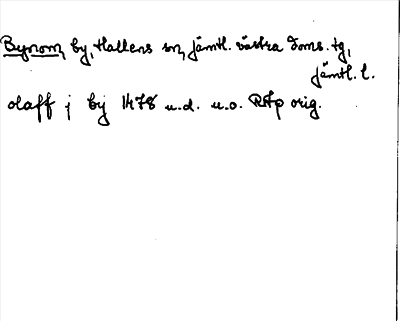 Byrom, by, Hallens sn, Jämtl. västra doms. tg,
Jämtl. l.
olaff j bij 1478 u.d. u.o. RAp orig.